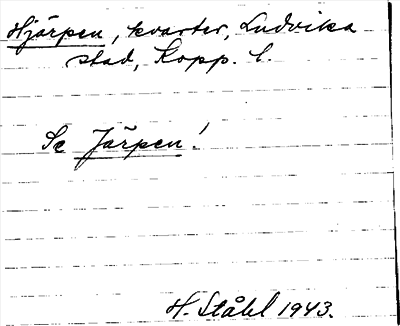 Hjärpen, kvarter, Ludvika
stad, Kopp. l.
Se Järpen!
H. Ståhl 1943.